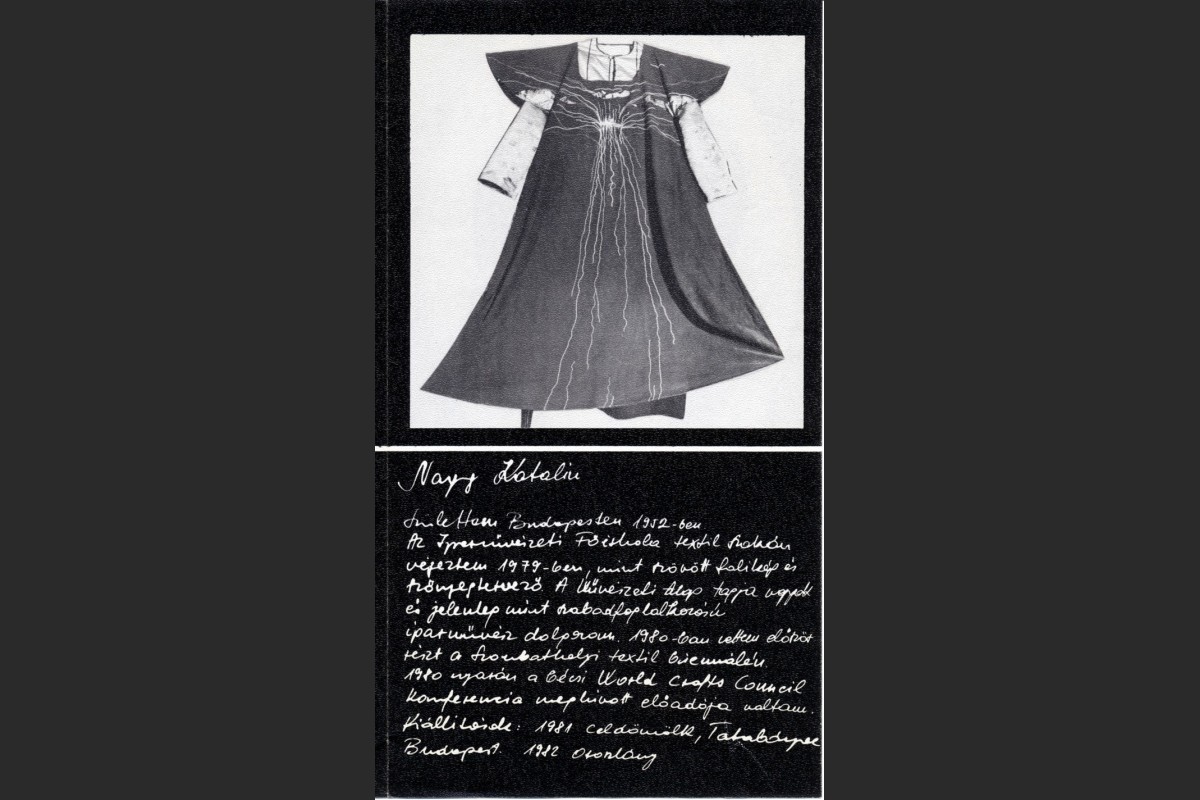 Nagy Katalin
Születtem Budapesten 1952-ben.
Az Iparművészeti Főiskola textil szakán
végeztem 1979-ben, mint szövött falikép és
szőnyegtervező. A Művészeti Alap tagja vagyok
és jelenleg mint szabadfoglalkozású
iparművész dolgozom. 1980-ban vettem először
részt a Szombathelyi textil biennálén.
1980 nyarán a bécsi World Crafts Council
Konferencia meghívott előadója voltam.
Kiállítások: 1981 Celldömölk, Tatabánya
Budapest. 1982 Oroszlány